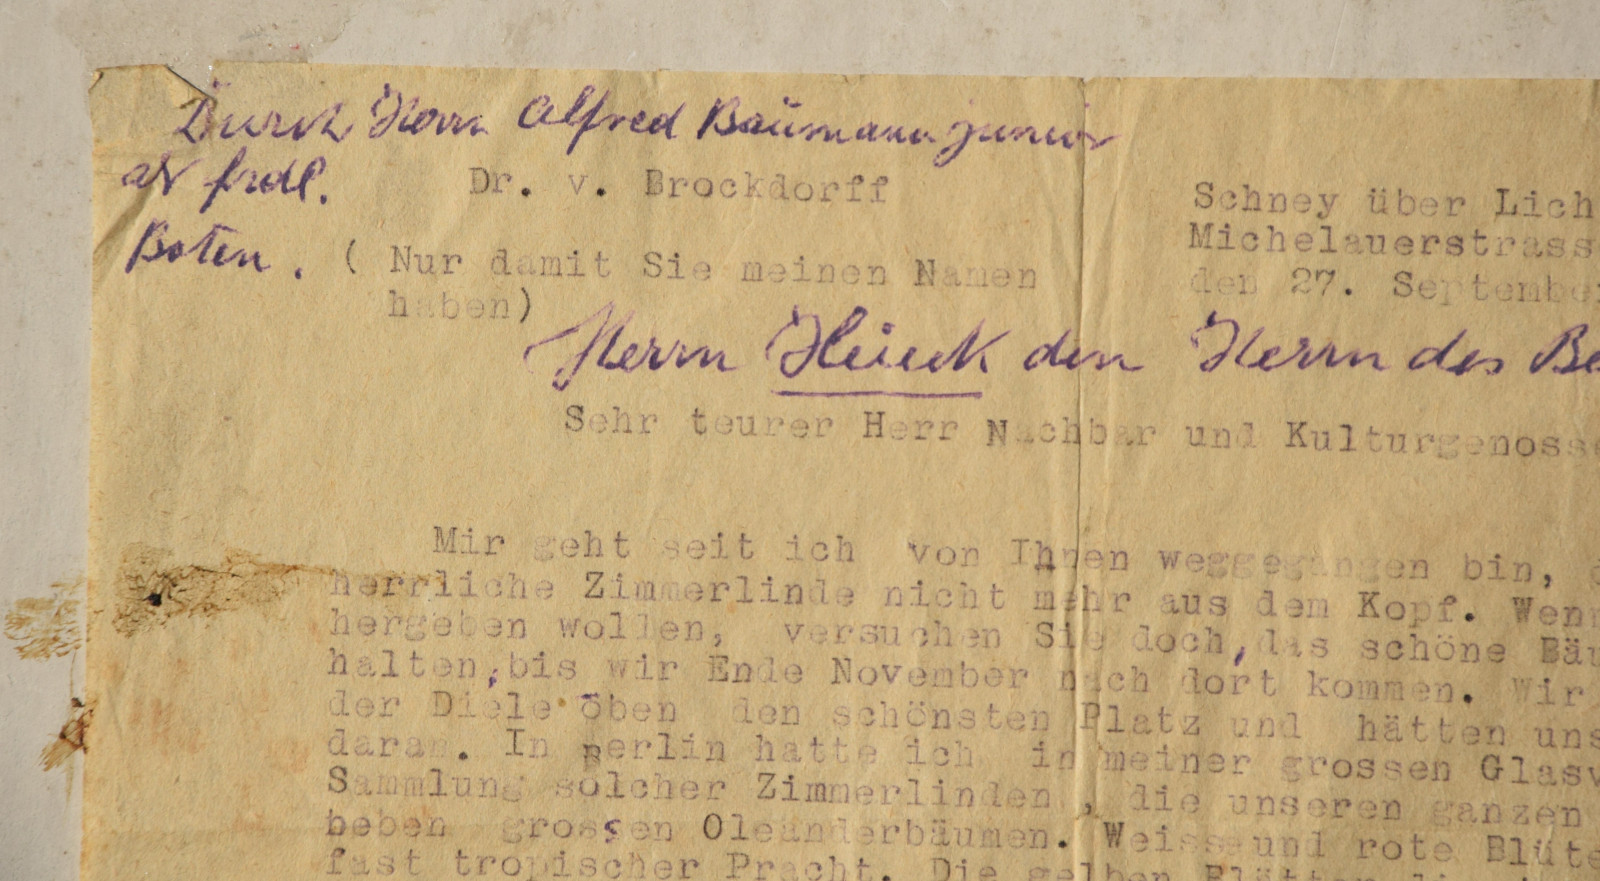 Durch Herrn Alfred Baumann junior
als frdl.
Boten.
Dr. v. Brockdorff
( Nur damit Sie meinen Namen
haben)
Schney über Lich
Michelauerstrass
den 27. September
Herrn Hueck den Herrn des Be
Sehr teurer Herr Nachbar und Kulturgenosse
Mir geht seit ich von Ihnen weggegangen bin,
herrliche Zimmerlinde nicht mehr aus dem Kopf. Wenn
hergeben wollen, versuchen Sie doch, das schöne Bäu
halten, bis wir Ende November nach dort kommen. Wir
der Diele oben den schönsten Platz und hätten uns
daran. In Berlin hatte ich in meiner grossen Glasv
Sammlung solcher Zimmerlinden , die unseren ganzen
beben grossen Oleanderbäumen. Weisse und rote Blüte
fast tropischer Pracht. Die gelben Blätter